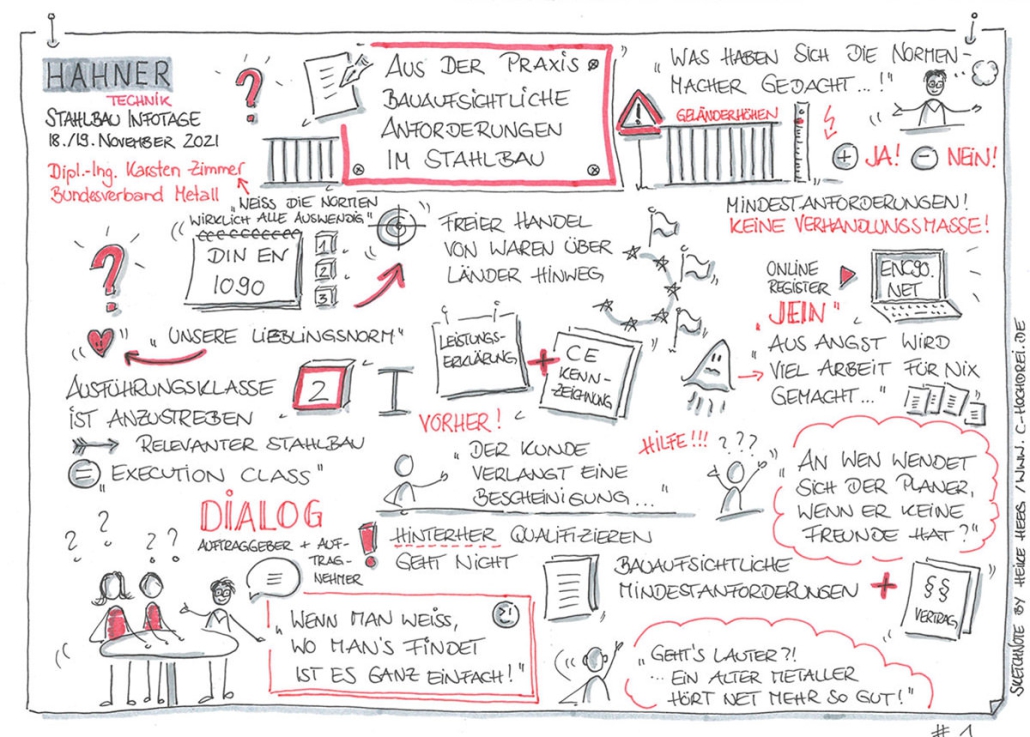 HAHNER
TECHNIK
STAHLBAU INFOTAGE
18./19. NOVEMBER 2021
Dipl.-Ing. Karsten Zimmer
Bundesverband Metall
"WEISS DIE NORMEN
WIRKLICH ALLE AUSWENDIG"
?
AUS DER PRAXIS
BAUAUFSICHTLICHE
ANFORDERUNGEN
IM STAHLBAU
"WAS HABEN SICH DIE NORMEN-
MACHER GEDACHT...!"
!
GELÄNDERHÖHEN
+ JA! - NEIN!
MINDESTANFORDERUNGEN!
KEINE VERHANDLUNGSMASSE!
?
DIN EN
1090
1
2
3
FREIER HANDEL
VON WAREN ÜBER
LÄNDER HINWEG
ONLINE
REGISTER
EN1090.
NET
"JEIN"
"AUS ANGST WIRD
VIEL ARBEIT FÜR NIX
GEMACHT..."
"UNSERE LIEBLINGSNORM"
AUSFÜHRUNGSKLASSE
IST ANZUSTREBEN
2
RELEVANTER STAHLBAU
"EXECUTION CLASS"
LEISTUNGS-
ERKLÄRUNG
+
CE
KENN-
ZEICHNUNG
VORHER!
"DER KUNDE
VERLANGT EINE
BESCHEINIGUNG..."
HILFE!!! ???
"AN WEN WENDET
SICH DER PLANER,
WENN ER KEINE
FREUNDE HAT?"
? ? ? ?
DIALOG
AUFTRAGGEBER + AUF-
TRAG-
NEHMER
!
HINTERHER QUALIFIZIEREN
GEHT NICHT
"WENN MAN WEISS,
WO MAN'S FINDET
IST ES GANZ EINFACH!"
BAUAUFSICHTLICHE
MINDESTANFORDERUNGEN +
§§
VERTRAG
"GEHT'S LAUTER?!
... EIN ALTER METALLER
HÖRT NET MEHR SO GUT!"
SKETCHNOTE BY HEIKE HEBS / WWW.C-HOCHDREI.DE
# 1